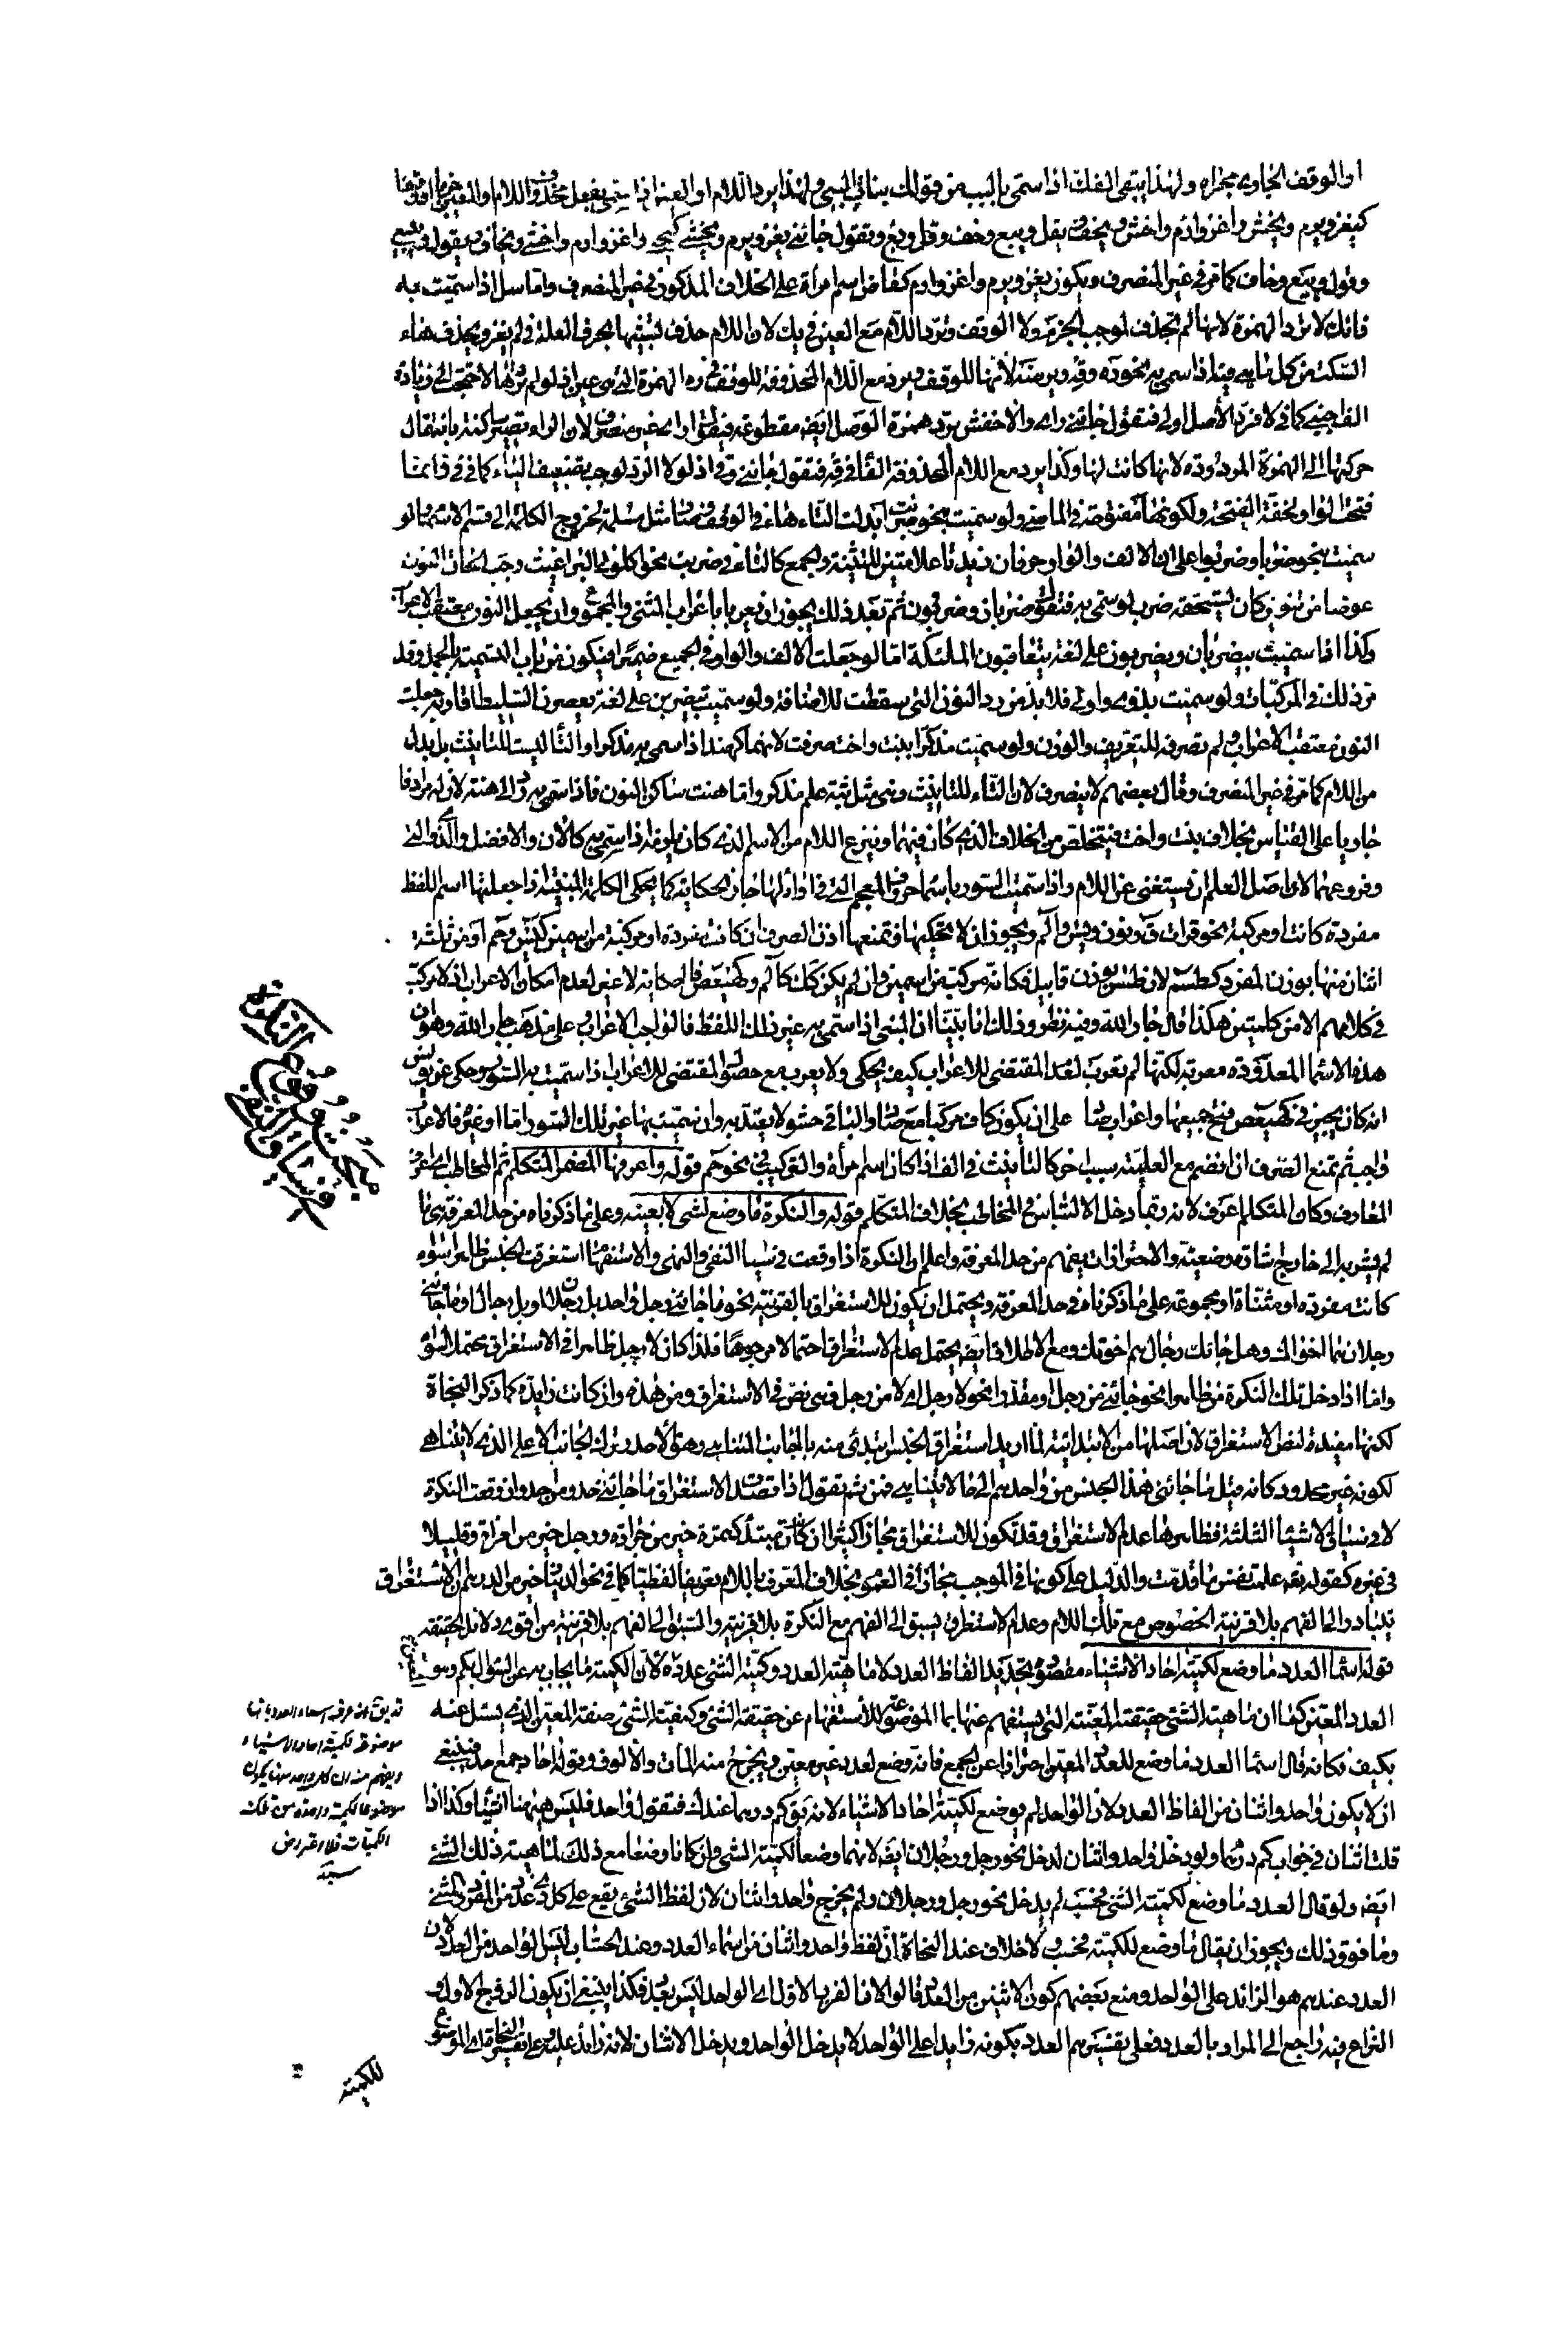 او الوقف الجاري مجراه ولهذا يبقى الفك اذا سمى بالبب من قولك بنات البب ولهذا يرد اللام او العين اذا سمى بفعل محذوف اللام او العين جزما او وقفا
كيغز ويرم ويخش واغز وارم واخش ويخف ويقل ويبع وخف وقل وبع وتقول جائني يغز ويرم ويخشى كيحيى واغز وارم واخشى ويخاف ويقول ويبيع
وقول وبيع وخاف كما مر في غير المنصرف ويكون يغز ويرم واغز وارم كقاض اسم امرأة على الخلاف المذكور في غير المنصرف واما سل اذا سميت به
فانك لا ترد الهمزة لانها لم تحذف لموجب الجزم ولا الوقف وترد اللام مع العين في يك لان اللام حذف لتشبيهها بحرف العلة في لم يغز ويحذف هاء
السكت من كل ما هي فيه اذا سمي به نحو ره وقه وير منه لانها للوقف ويرد مع اللام المحذوفة للوقف في ره الهمزة التي هي عين اذ لو لم تردها لاحتجت الى زيادة
الف اجنبي كما في لا فرد الاصل اولى فتقول جائني راى والاخفش يرد همزة الوصل ايضا مقطوعة فيقول اراى غير منصرف لان الراء تصير ساكنة بانتقال
حركتها الى الهمزة المردودة لانها كانت لها وكذا يرد مع اللام المحذوفة الفاء في قه فتقول جائني وقى اذ لولا الرد لوجب تضعيف الياء كما في في وانما
فتحت الواو لخفة الفتحة ولكونها مفتوحة في الماضي ولو سميت بنحو ضربت ابدلت التاء هاء في الوقف فصار مثل مسلمة لخروج الكلمة الى قسم الاسماء ولو
سميت بنحو ضربا وضربوا على ان الالف والواو حرفان زيدتا علامتين للتثنية والجمع كالتاء في ضربت نحو اكلوني البراغيث وجب الحاق النون
عوضا من تنوين كان يستحقه ضرب لو سمي به فتقول ضربان وضربون ثم بعد ذلك يجوز ان يعربا باعراب المثنى والمجموع وان يجعل النون معتقب الاعراب
وكذا اذا سميت بيضربان ويضربون على لغة يتعاقبون الملئكة اما لو جعلت الالف والواو في الجميع ضميرا فيكون من باب التسمية بالجمل وقد
مر ذلك في المركبات ولو سميت بذوي واولى فلا بد من رد النون التي سقطت للاضافة ولو سميت بيضربن على لغة يعصرن السليط اقاربه جعلت
النون معتقب الاعراب ولم تصرفه للتعريف والوزن ولو سميت مذكرا ببنت واخت صرفت لانهما كهند اذا سمي به مذكر والتا ليست للتانيث بل بدل
من اللام كما مر في غير المنصرف وقال بعضهم لا ينصرف لان التاء للتانيث وهي مثل ثبة علم مذكر واما هنت ساكن النون فاذا سمي به رد الى هنة لان له مرادفا
جاريا على القياس بخلاف بنت واخت فيتخلص من الخلاف الذي كان فيهما وينزع اللام من الاسم الذي كان يلزمه اذا سمي به كالان والافضل والذي والتي
وفروعهما لان اصل العلم ان يستغنى عن اللام واذا سميت السور باسماء حروف المعجم التي في اوائلها جاز الحكاية كما يحكى الكلمة المبنية اذا جعلتها اسم اللفظ
مفردة كانت او مركبة نحو قرات ق ونون ويس والم ويجوز ان لا تحكيها فتمنعها اذن الصرف ان كانت مفردة او مركبة من اسمين كيس وحم او من ثلثة
اثنان منها بوزن المفرد كطسم لان طس بوزن قابيل فكانه مركب من اسمين وان لم يكن كذلك كالم وكهيعص فالحكاية لا غير لعدم امكان الاعراب اذ لا مركب
في كلامهم الا من كلمتين هكذا قال جار الله وفيه نظر وذلك انا بينا ان المبنى اذا سمي به غير ذلك اللفظ فالواجب الاعراب على مذهب جار الله وهو ان
هذه الاسماء المعدودة معربة لكنها لم تعرب لفقد المقتضي للاعراب كيف يحكى ولا يعرب مع حصول المقتضي للاعراب اذا سميت به السور وحكى عن يونس
انه كان يجيز في كهيعص فتح جميعها واعراب صا على ان يكون كاف مركبا مع صا والباقي حشو لا يعتد به وان سميت بها غير تلك السور اما او غير فالاعراب
واجب ثم تمنع الصرف ان انضم مع العلمية سبب اخر كالتانيث في الف اذا كان اسم امرأة والتركيب في نحو حم قوله واعرفها المضمر المتكلم ثم المخاطب اي اعرف
المعارف وكان المتكلم اعرف لانه ربما دخل الالتباس في المخاطب بخلاف المتكلم قوله والنكرة ما وضع لشئ لا بعينه وعلى ما ذكرناه من حد المعرفة هي ما
لم يشر به الى خارج اشارة وضعية والاحترازات يفهم من حد المعرفة واعلم ان النكرة اذا وقعت في سياق النفي والنهي والاستفهام استغرقت الجنس ظاهرا سواء
كانت مفردة او مثناة او مجموعة على ما ذكرناه في حد المعرفة ويحتمل ان يكون للاستغراق بالقرينة نحو ما جائني رجل واحد بل رجلان او بل رجال او ما جائني
رجلان هما اخواك وهل جاءك رجال هم اخوتك ومع الاطلاق ايضا يحتمل عدم الاستغراق احتمالا مرجوحا فلذا كان لا رجل ظاهرا في الاستغراق محتملا لسواه
واما اذا دخل تلك النكرة من ظاهرا نحو ما جائني من رجل او مقدرا نحو لا رجل اي لا من رجل فهي نص في الاستغراق ومن هذه وان كانت زايدة كما ذكر النحاة
لكنها مفيدة لنص الاستغراق لان اصلها من الابتدائية لما اريد استغراق الجنس ابتدئ منه بالجانب المتناهي وهو الاحد وترك الجانب الاعلى الذي لا يتناهى
لكونه غير محدود كانه قيل ما جائني هذا الجنس من واحدهم الى ما لا يتناهى فمن ثم تقول اذا قصدت الاستغراق ما جائني احد ومن احد وان وقعت النكرة
لا في سياق الاشياء الثلثة فظاهرها عدم الاستغراق وقد تكون للاستغراق مجازا كثيرا ان كانت مبتدأ كتمرة خير من جرادة ورجل خير من امرأة وقليلا
في غيره كقوله تع علمت نفس ما قدمت والدليل على كونها في الموجب مجازا في العموم بخلاف المعرف باللام تعريفا لفظيا كما في نحو الدينار خير من الدرهم ان الاستغراق
يتبادر الى الفهم بلا قرينة الخصوص مع تلك اللام وعدم الاستغراق يسبق الى الفهم مع النكرة بلا قرينة والسبق الى الفهم بلا قرينة من اقوى دلائل الحقيقة
قوله اسماء العدد ما وضع لكمية احاد الاشياء مقصوده تحديد الفاظ العدد لا ماهية العدد وكمية الشئ عدده لان الكمية ما يجاب به عن السؤال بكم وهو
العدد المعين كما ان ماهية الشئ حقيقته المعينة التي يستفهم عنها بما الموضوعة للاستفهام عن حقيقة الشئ وكيفية الشئ صفته المعينة التي يسئل عنه
بكيف فكانه قال اسماء العدد ما وضع للعدد المعين احترازا عن الجمع فانه وضع لعدد غير معين ويخرج منه المات والالوف وبقوله احاد جمع احد فينبغي
ان لا يكون واحد واثنان من الفاظ العدد لان الواحد لم يوضع لكمية احاد الاشياء لانه يق كم درهما عندك فتقول واحد فليس ههنا اشياء وكذا اذا
قلت اثنان في جواب كم درهما ولو دخل واحد واثنان لدخل نحو رجل ورجلان ايضا لانهما وضعا لكمية الشئ وان كانا وضعا مع ذلك لماهية ذلك الشئ
ايضا ولو قال العدد ما وضع لكمية الشئ فحسب لم يدخل نحو رجل ورجلان ولم يخرج واحد واثنان لان لفظ الشئ يقع على كل ذي عدد من المفرد والمثنى
وما فوق ذلك ويجوز ان يقال ما وضع للكمية فحسب ولا خلاف عند النحاة ان لفظ واحد واثنان من اسماء العدد وعند الحساب ليس الواحد من العدد لان
العدد عندهم هو الزائد على الواحد ومنع بعضهم كون الاثنين من العدد قالوا لان الفرد الاول اي الواحد ليس بعدد فكذا ينبغي ان يكون الزوج الاول و
النزاع فيه راجع الى المراد بالعدد فعلى تفسيرهم العدد بكونه زايدا على الواحد لا يدخل الواحد ويدخل الاثنان لانه زائد عليه وعلى تفسير النحاة اي الموضوع
للكمية